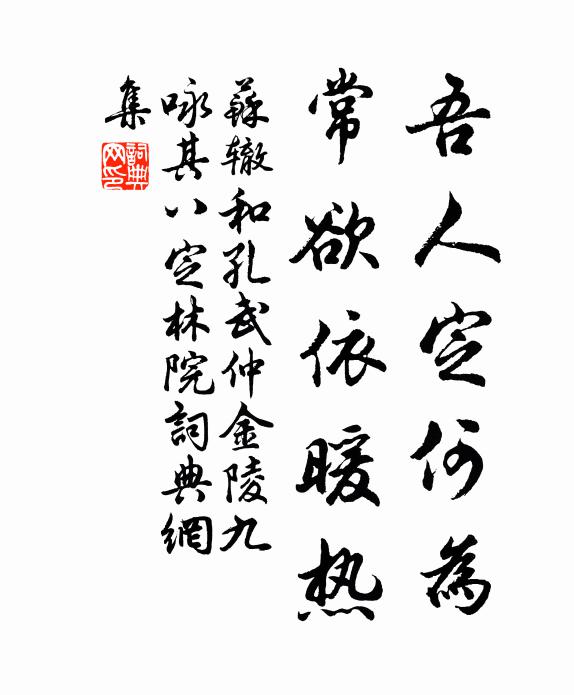 吾人定何為
常欲依暖热
蘇辙和孔武仲金陵九
咏其八定林院詞典網
集
詞典网印